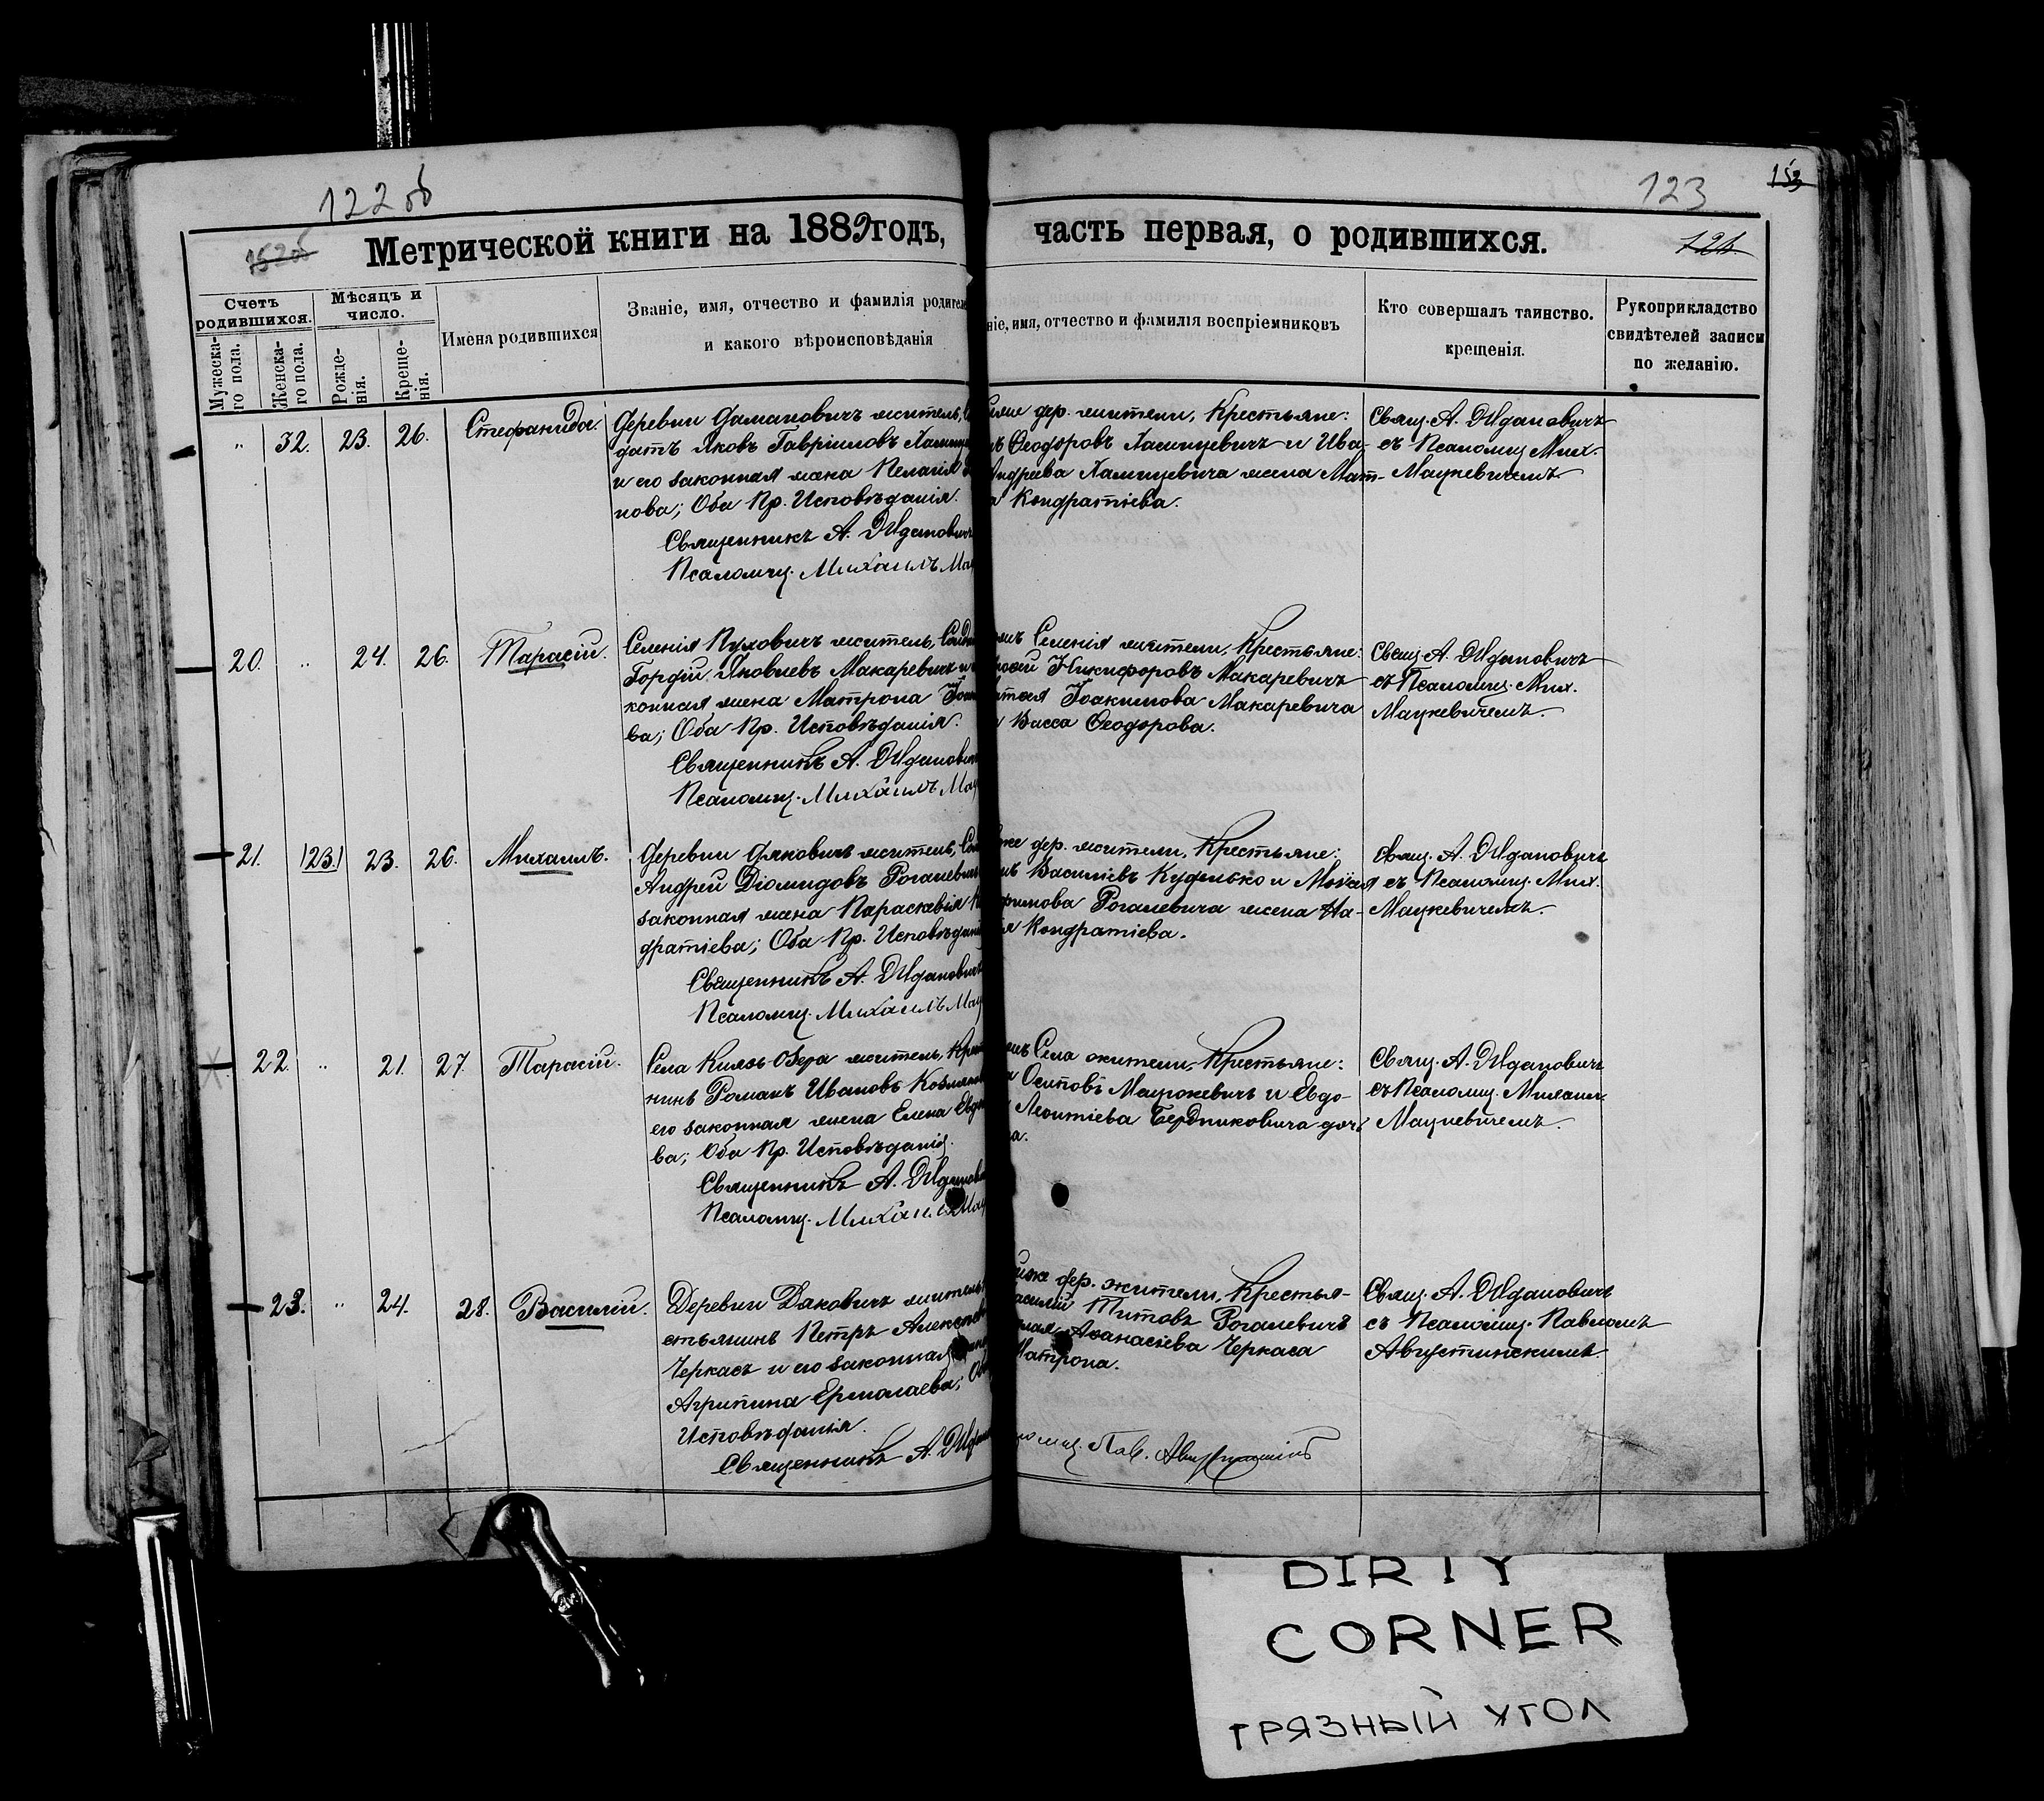 122 об
123
153
152 об
Метрической книги на 1889 годъ,
часть первая, о родившихся.
124
Счетъ родившихся.
Мѣсяцъ и число.
Мужеска-го пола.
Женска-го пола.
Рожде-нія.
Креще-нія.
Имена родившихся
Званіе, имя, отчество и фамилія родителе
и какого вѣроисповѣданія
ніе, имя, отчество и фамилія воспріемниковъ
Кто совершалъ таинство.
крещенія.
Рукоприкладство
свидѣтелей записи
по желанію.
" 32. 23. 26. Стефанида.
Деревни житель,
датъ Яковъ Гавріиловъ
и его законная жена Пелагія
нова; Оба Пр. Исповѣданія.
Священникъ А. Ждановичъ
Псаломщ. Михаилъ Мац
дер. жители, Крестьяне:
Ѳеодоровъ и Ива-
Андреева жена Мат-
а Кондратіева.
Свящ. А. Ждановичъ
съ Псаломщ. Мих.
Мацкевичемъ.
20. " 24. 26. Тарасій.
Селенія Пуховичъ житель,
Гордій Яковлевъ Макаревичъ и
конная жена Матрона
ва; Оба Пр. Исповѣданія.
Священникъ А. Ждановичъ
Псаломщ. Михаилъ Мац
Селенія жители, Крестьяне:
Никифоровъ Макаревичъ
Іоакимова Макаревича
Васса Ѳеодорова.
Свящ. А. Ждановичъ
съ Псаломщ. Мих.
Мацкевичемъ.
21. 23. 23. 26. Михаилъ.
Деревни Дяковичъ житель,
Андрей Діомидовъ Рогалевичъ
законная жена Параскевія
дратіева; Оба Пр. Исповѣдан
Священникъ А. Ждановичъ
Псаломщ. Михаилъ Мац
же дер. жители, Крестьяне:
Василіевъ Кудлько и
Рогалевича жена На-
Кондратіева.
Свящ. А. Ждановичъ
съ Псаломщ. Мих.
Мацкевичемъ.
22. " 21. 27. Тарасій.
Села Князь Озера житель, Крест
нинъ Романъ Ивановъ
его законная жена Елена Евд
ва; Оба Пр. Исповѣданія.
Священникъ А. Жданов
Псаломщ. Михаилъ Мац
Села жители, Крестьяне:
Осиповъ и Евдо-
Леонтіева Бердниковича дочь
а.
Свящ. А. Ждановичъ
съ Псаломщ. Михаил.
Мацкевичемъ.
23. " 24. 28. Василій.
Деревни Дяковичъ житель
стьянинъ Петръ
Черкасъ и его законная жен
Агрипина Ермолаева; Об
Исповѣданія.
Священникъ А. Ждан
же дер. жители, Крестья-
Титовъ Рогалевичъ
Аѳанасіева Черкаса
Матрона.
Пав. Августинскій
Свящ. А. Ждановичъ
съ Псаломщ. Павломъ
Августинскимъ.
DIRTY
CORNER
ГРЯЗНЫЙ УГОЛ